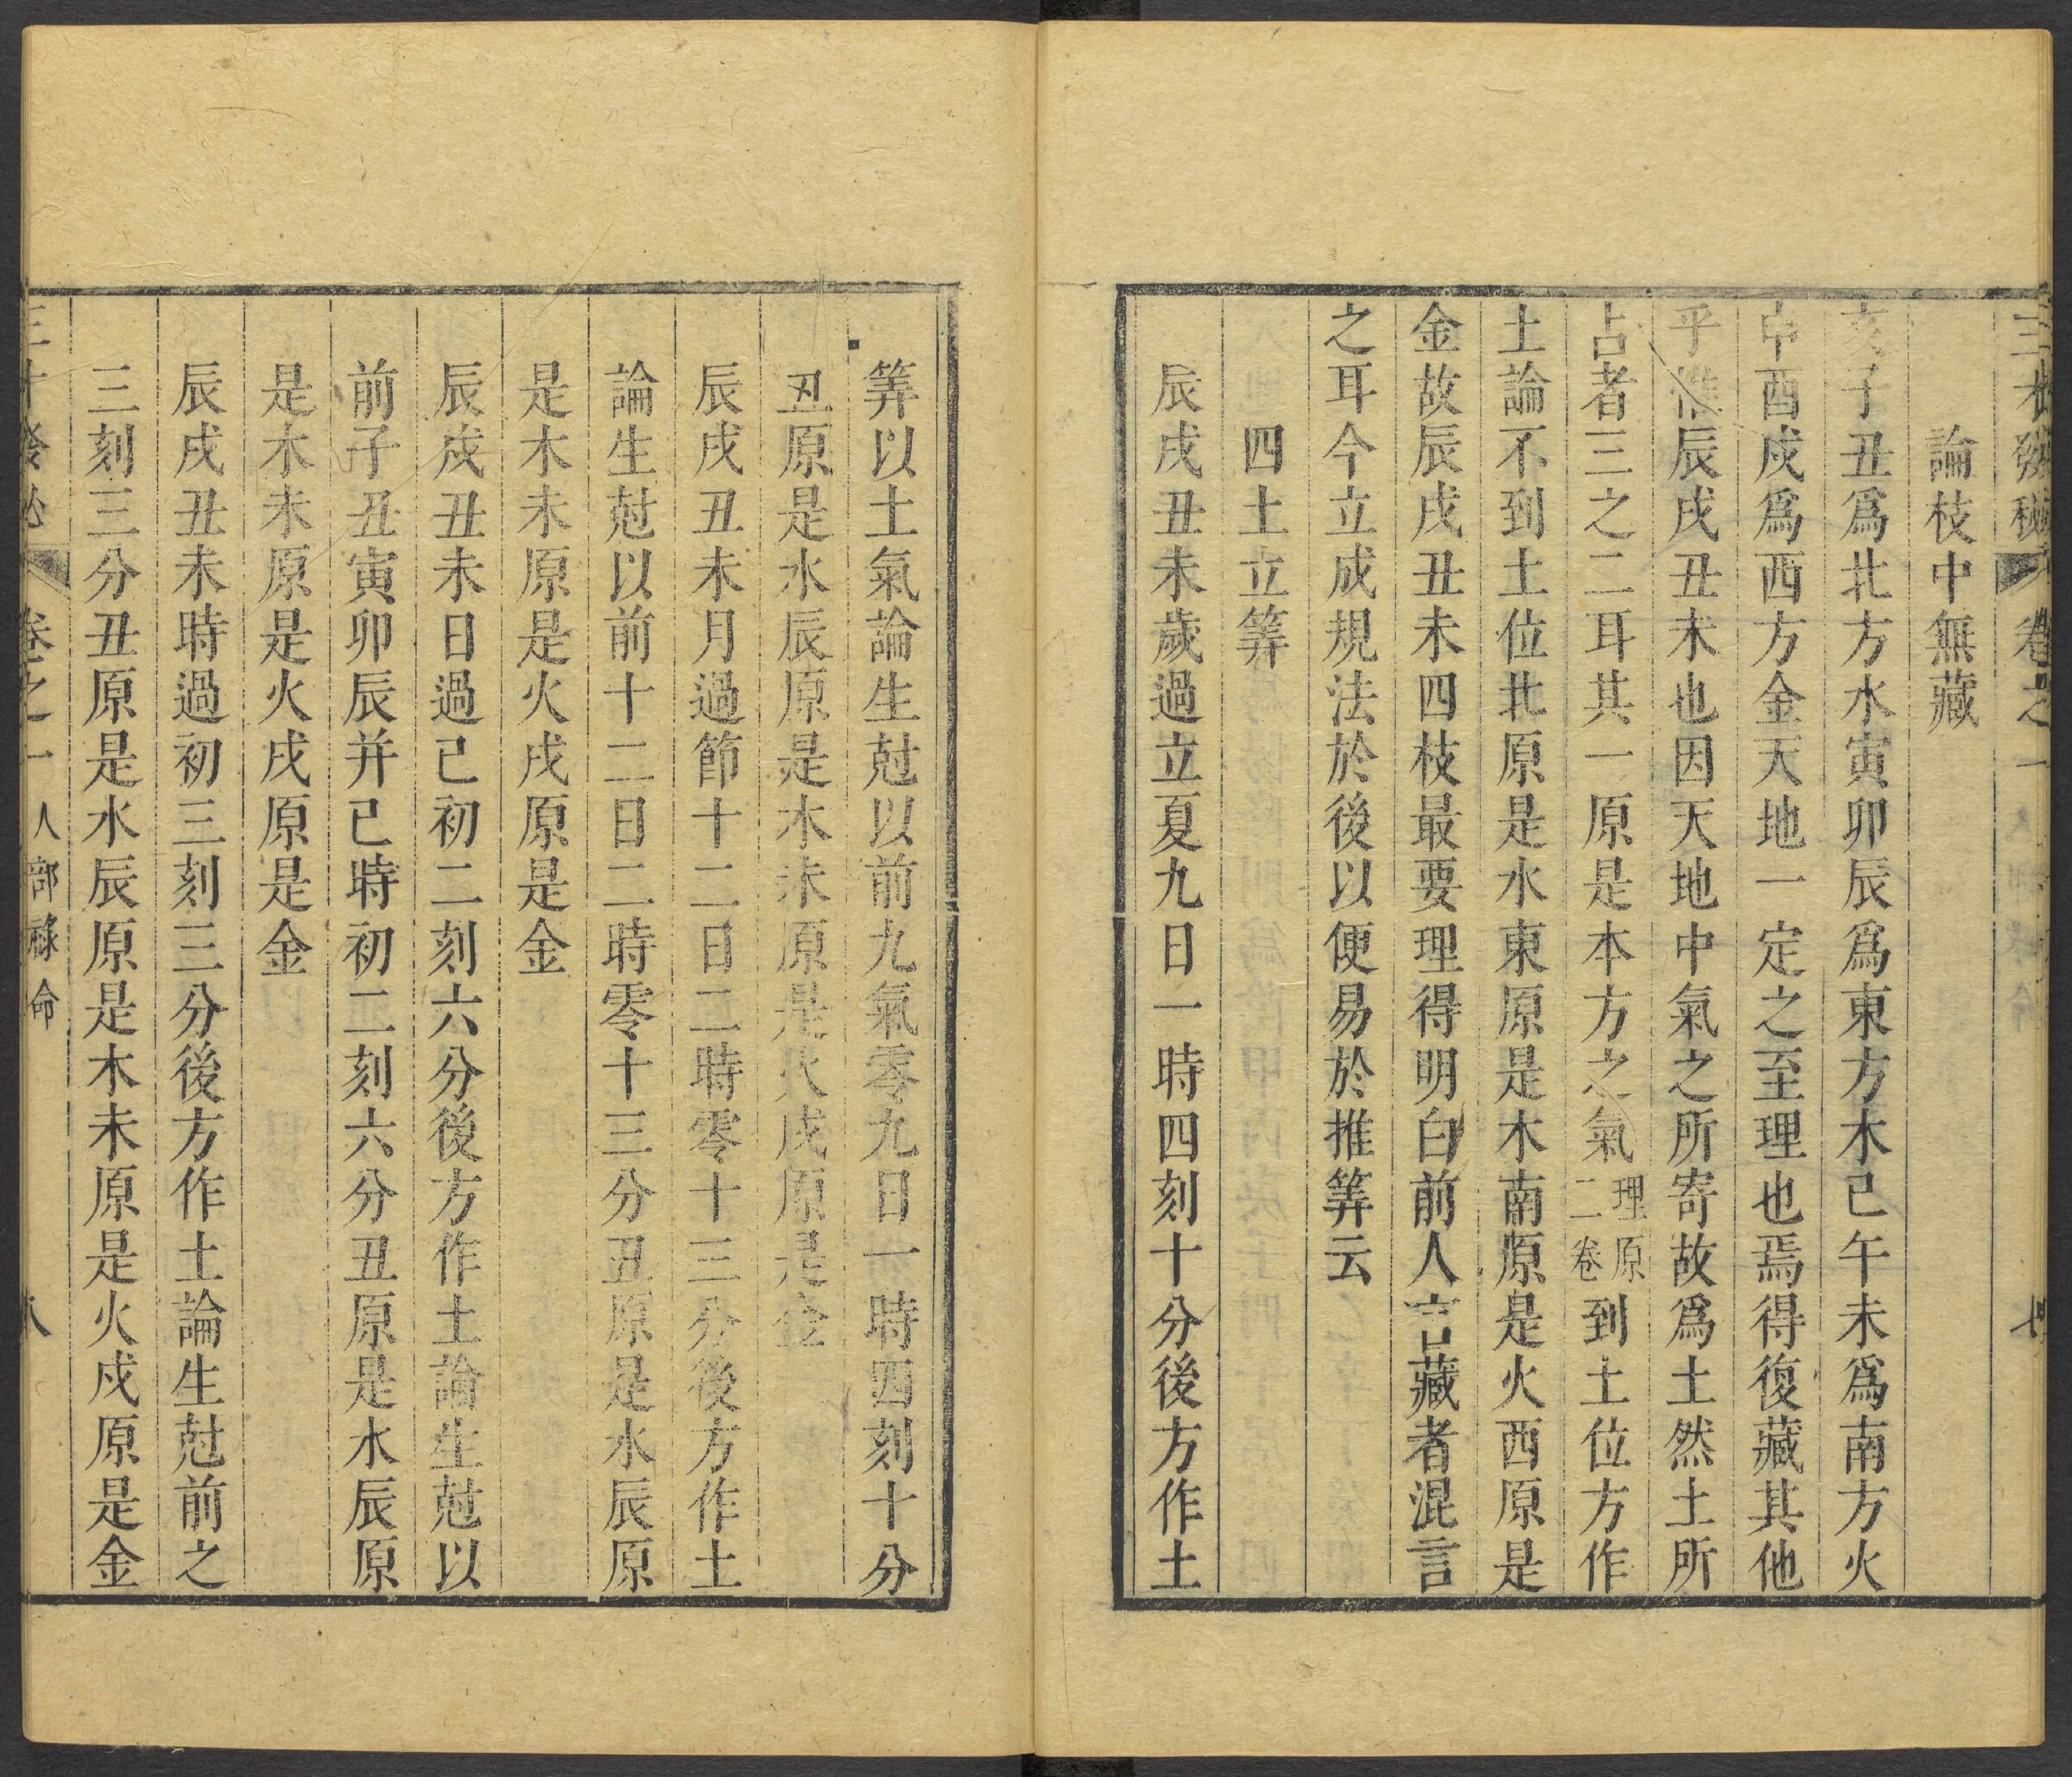 三才發秘 卷之一 七
論枝中無藏
亥子丑爲北方水寅卯辰爲東方木巳午未爲南方火
申酉戌爲西方金天地一定之至理也焉得復藏其他
乎惟辰戌丑未也因天地中氣之所寄故爲土然土所
占者三之二耳其一原是本方之氣理原二卷到土位方作
土論不到土位北原是水東原是木南原是火西原是
金故辰戌丑未四枝最要理得明白前人言藏者混言
之耳今立成規法於後以便易於推筭云
四土立筭
辰戌丑未歲過立夏九日一時四刻十分後方作土
筭以土氣論生尅以前九氣零九日一時四刻十分
丑原是水辰原是木未原是火戌原是金
辰戌丑未月過節十二日二時零十三分後方作土
論生尅以前十二日二時零十三分丑原是水辰原
是木未原是火戌原是金
辰戌丑未日過巳初二刻六分後方作土論生尅以
前子丑寅卯辰并巳時初二刻六分丑原是水辰原
是木未原是火戌原是金
辰戌丑未時過初三刻三分後方作土論生尅前之
三刻三分丑原是水辰原是木未原是火戌原是金
三才發秘 卷之一 人部祿命 八